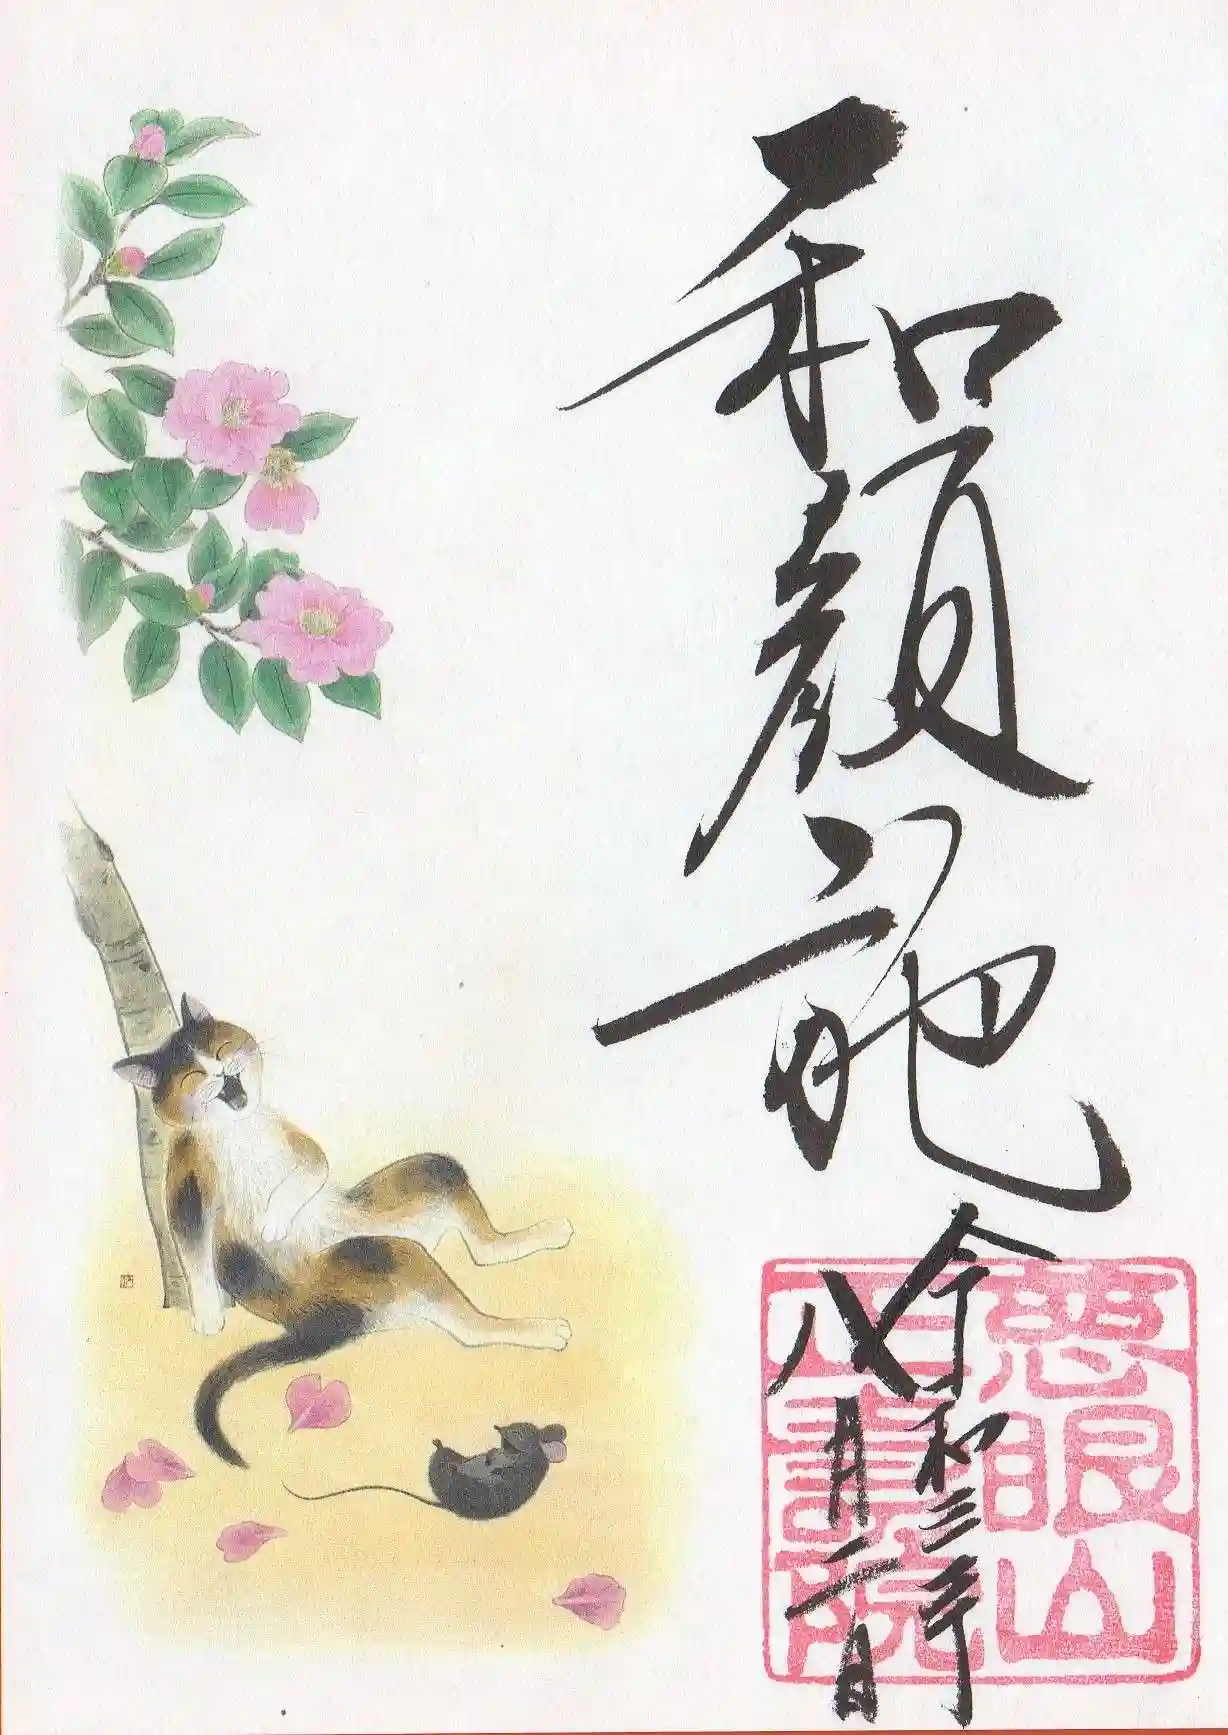 和顔施
令和三年
八月二日
慈眼山
正壽院